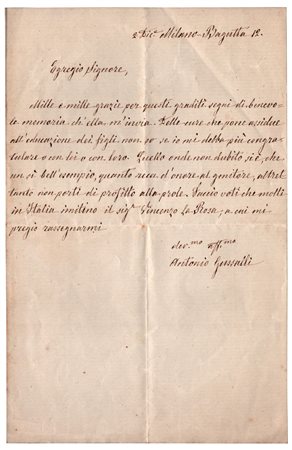 2 Dic.e Milano - Bagutta 12.
Egregio Signore,
Mille e mille grazie per questi graditi segni di benevo-
le memoria ch'ella m'invia. Delle cure che pone assidue
all'educazione dei figli, non so se io mi debba più congra-
tulare con lei o con loro. Quello onde non dubito si è, che
un sì bell'esempio, quanto reca d'onore al genitore, altret
tanto non porti di profitto alla prole. Faccio voti che molti
in Italia imitino il sig.r Vincenzo La Rosa, a cui mi
pregio rassegnarmi
dev.mo aff.mo
Antonio Gussalli